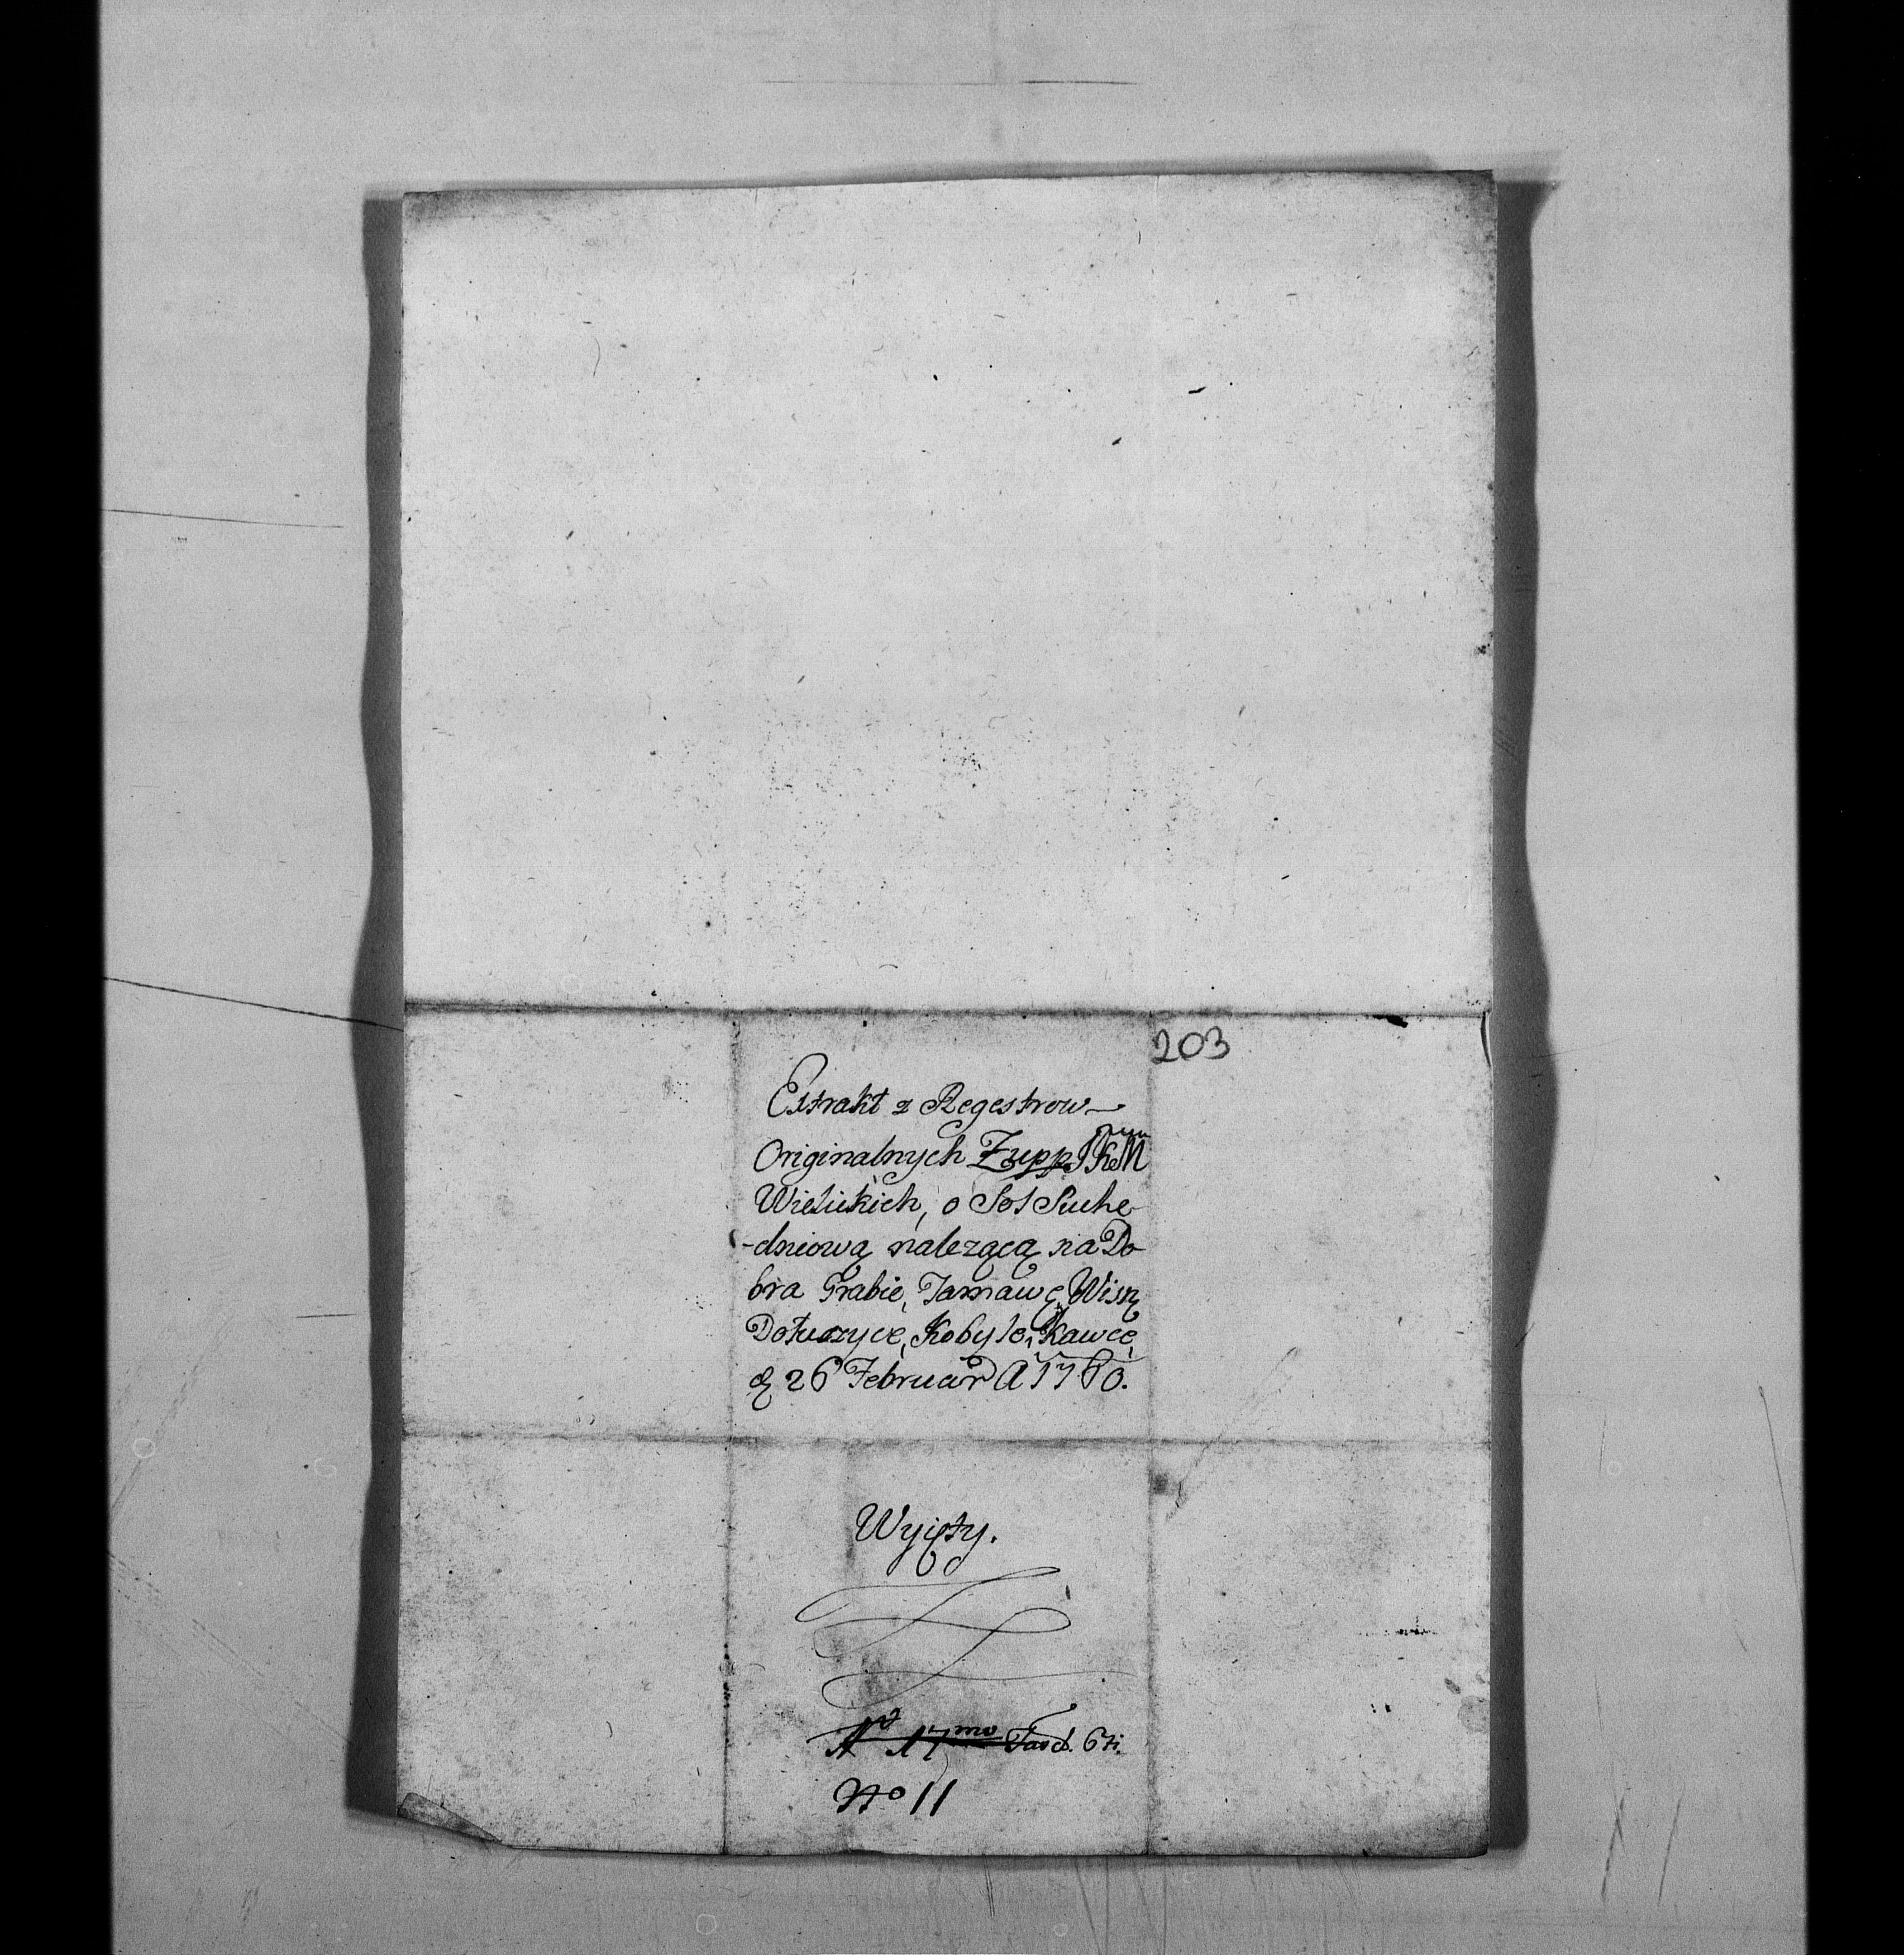 203
Extrakt z Regestrow
Originalnych Zupp JKM
Wielickich, o Sol Suche
-dniową nalezącą na Do
bra Grabie, Tarnawę, Wisnę
Dołuszyce, Kobyle, Kawce,
26 Februar A 1760.
Wyięty.
No 17mo Fasc. 6ti.
No 11